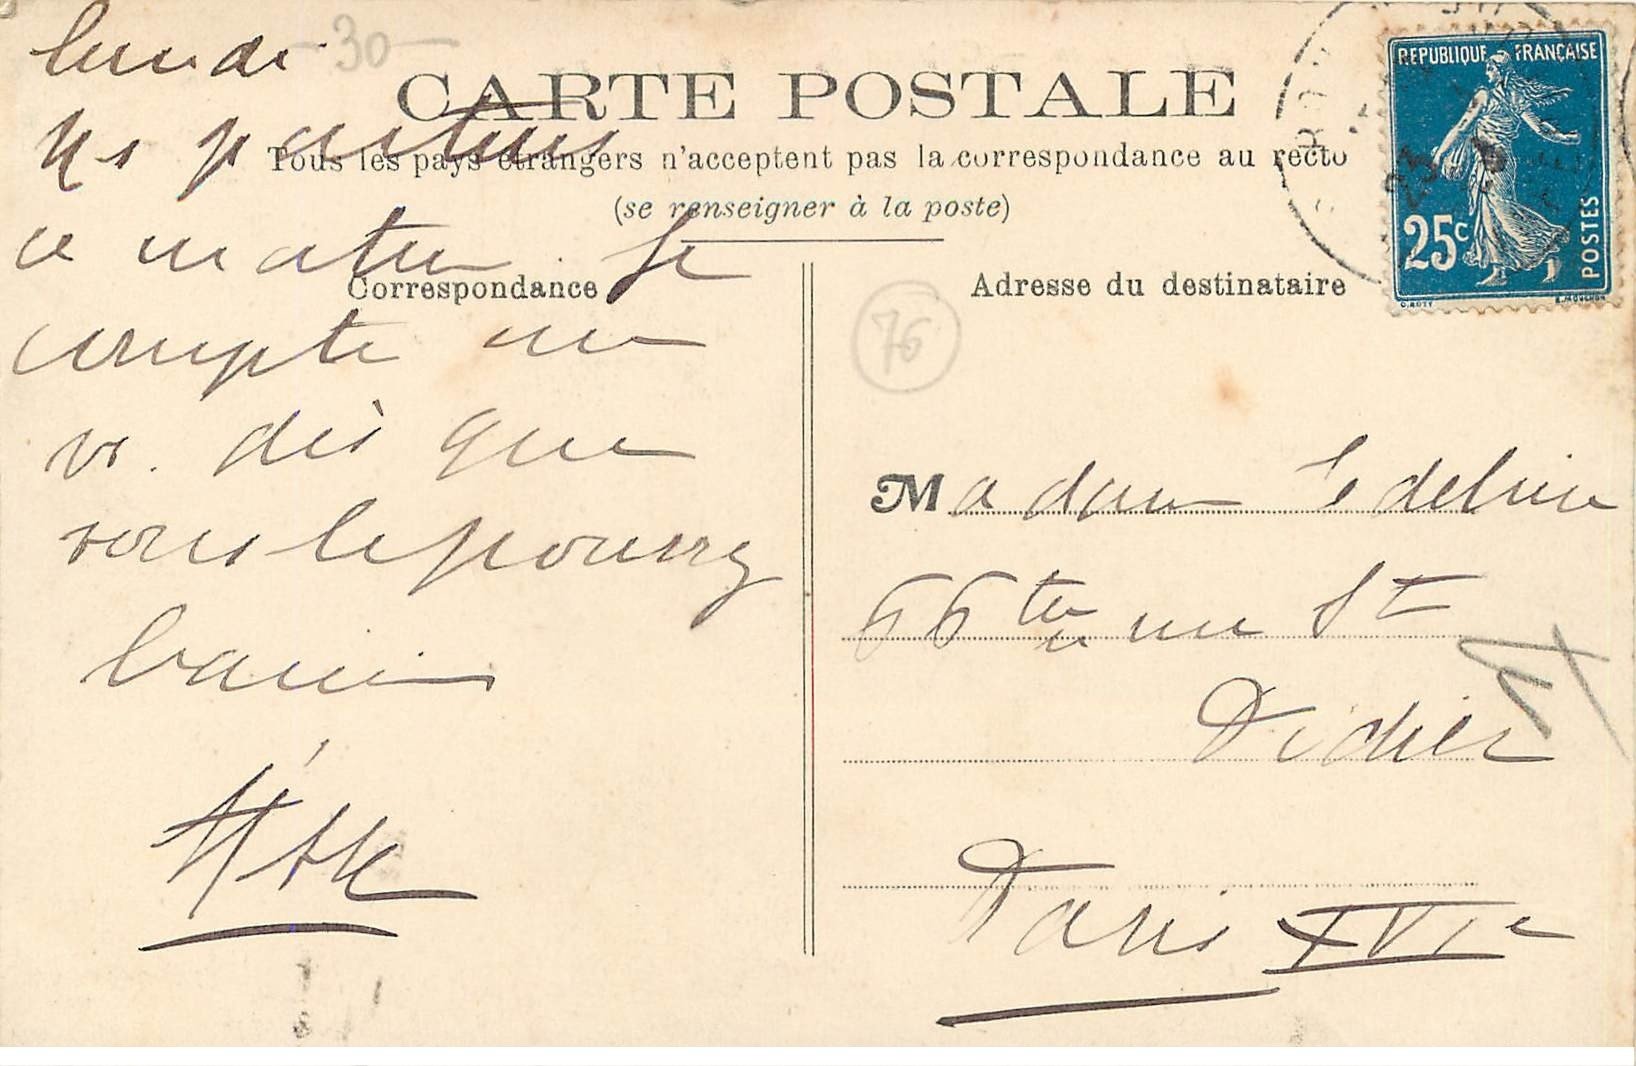 lundi
30
CARTE POSTALE
ns partons
Tous les pays étrangers n'acceptent pas la correspondance au recto
(se renseigner à la poste)
ce matin. Je
Correspondance
compte
vs. dès que
vous le pourrez
Adresse du destinataire
76
Madame
66 ter rue St
Didier
Paris XVIe
REPUBLIQUE FRANÇAISE
25c
POSTES
O. ROTY
E. MOUCHON